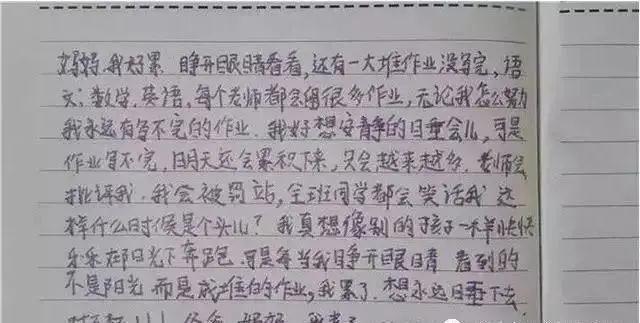 妈妈,我好累 睁开眼睛看看,还有一大堆作业没写完,语
文,数学,英语,每个老师都会留很多作业,无论我怎么努
我永远有写不完的作业.我好想安静的睡会儿,可是
作业写不完,明天还会累积下来,只会越来越多.老师会
批评我.我会被罚站,全班同学都会笑话我 这
样什么时候是个头儿?我真想像别的孩子一样快快
乐乐在阳光下奔跑 可是每当我睁开眼睛 看到的
不是阳光 而是成堆的作业,我累了.想永远睡下去
爸爸 妈妈 我走了